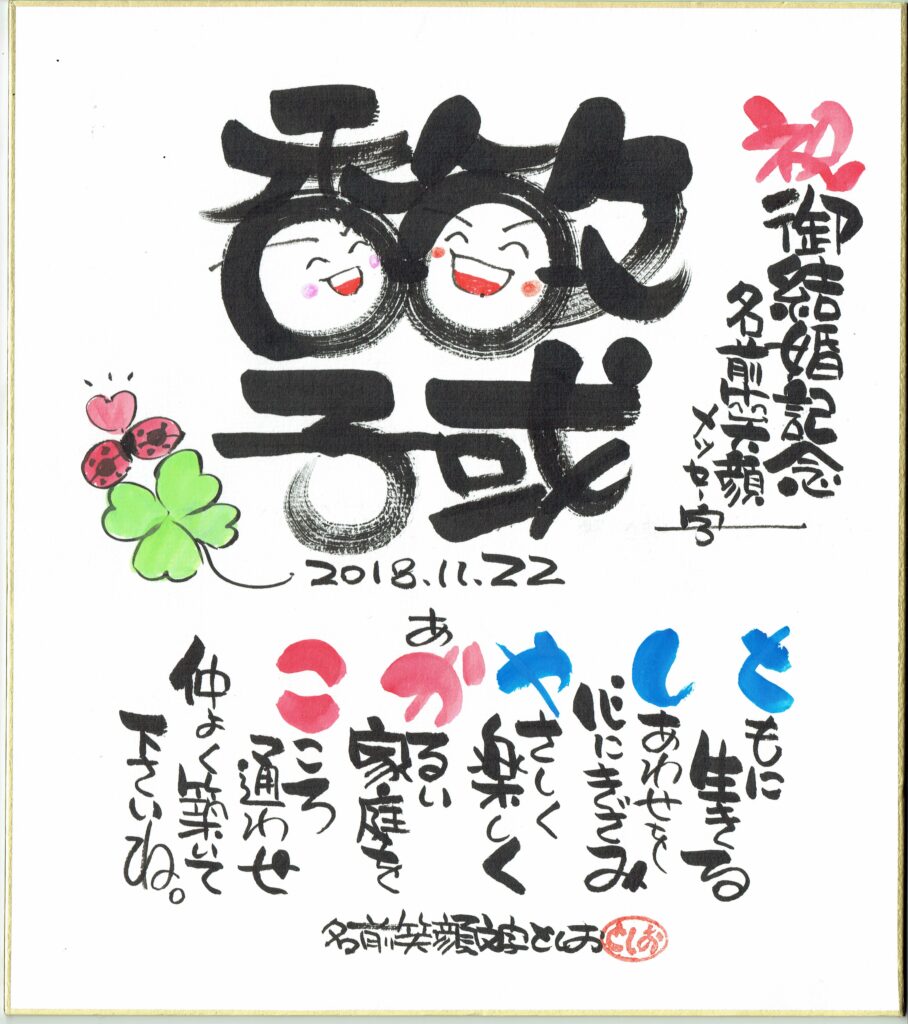 祝
御結婚記念
名前笑顔
メッセー字
香子
2018.11.22
ともに
生きる
しあわせを
心にきざみ
やさしく
楽しく
あかるい
家庭を
こころ
通わせ
仲よく築いて
下さいね。
名前笑顔文字としお
としお